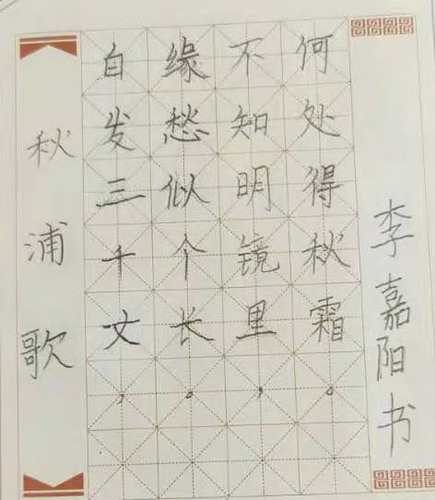 秋浦歌
自发三千丈，
缘愁似个长。
不知明镜里，
何处得秋霜。
李嘉阳书